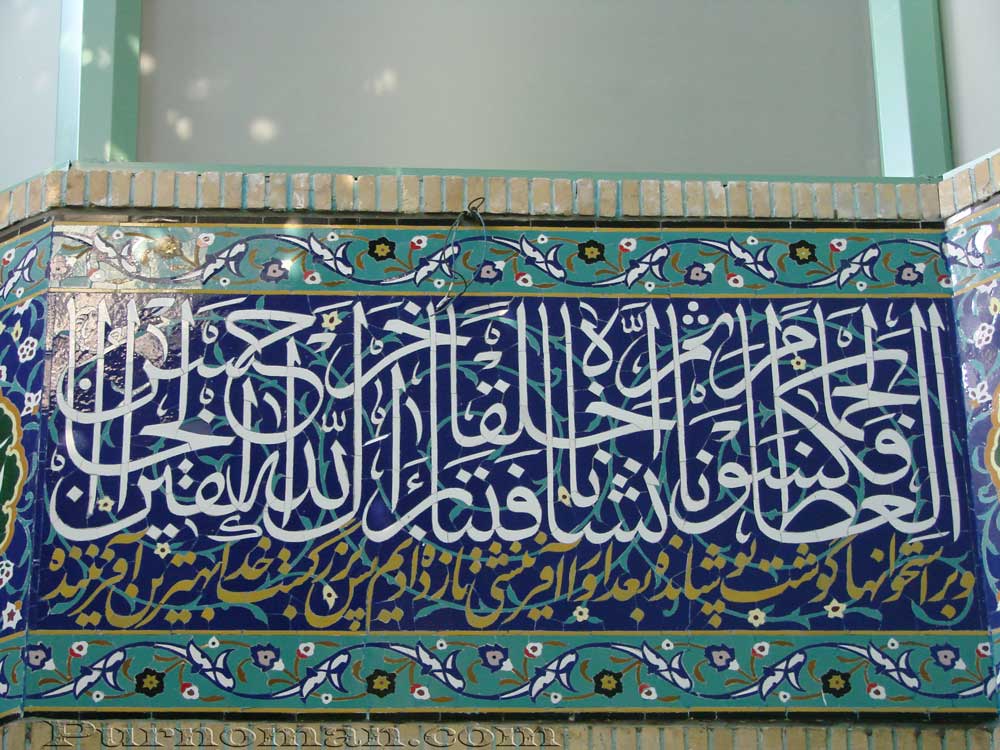 فكسونا العظام لحما ثم أنشأناه خلقا آخر فتبارك الله أحسن الخالقين
و بر استخوانها گوشت پوشانده بعد او را آفرینشی تازه دادیم پس بزرگست خدا بهترین آفریننده
Purnoman.com